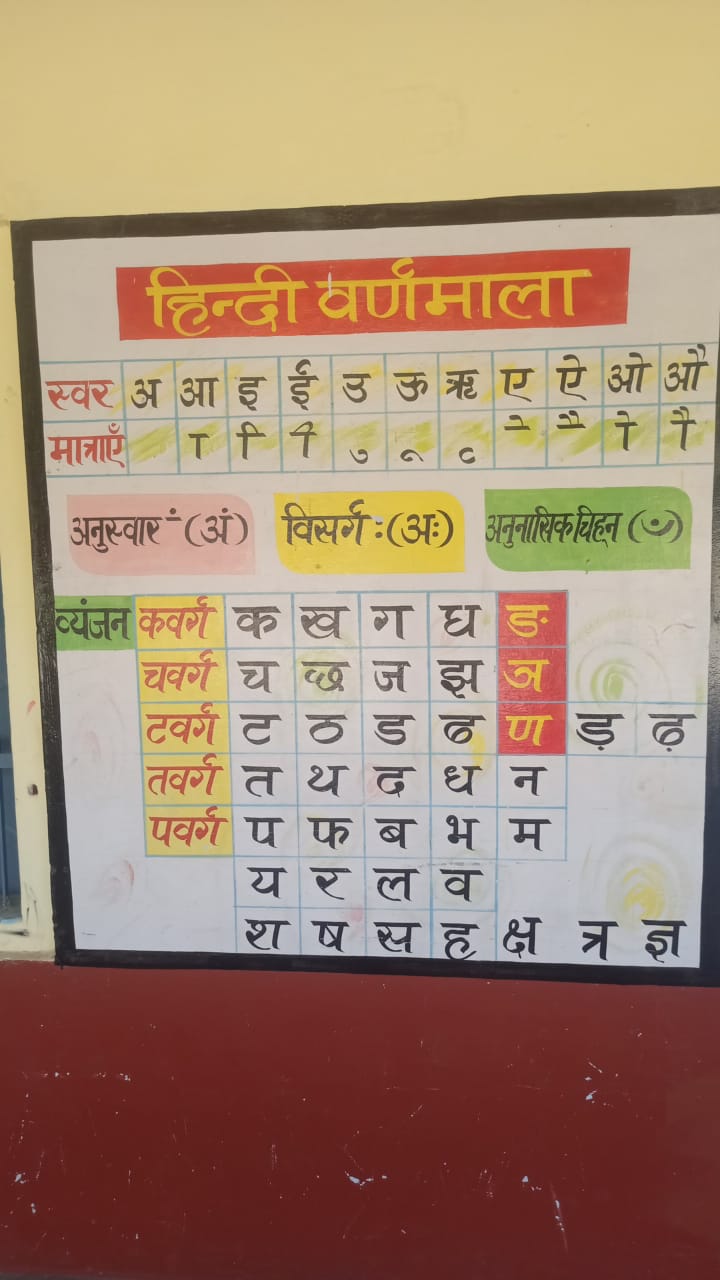 हिन्दी वर्णमाला
स्वर अ आ इ ई उ ऊ ऋ ए ऐ ओ औ
मात्राएँ ा ि ी ु ू ृ े ै ो ौ
अनुस्वार ं (अं) विसर्ग : (अः) अनुनासिक चिह्न (ँ)
व्यंजन कवर्ग क ख ग घ ङ
चवर्ग च छ ज झ ञ
टवर्ग ट ठ ड ढ ण ड़ ढ़
तवर्ग त थ द ध न
पवर्ग प फ ब भ म
य र ल व
श ष स ह क्ष त्र ज्ञ